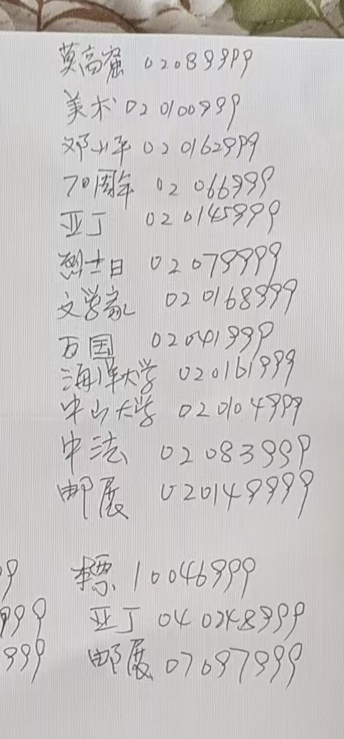 莫高窟 02089999
美术 020100999
邓小平 020162999
70周年 02066999
亚丁 020145999
烈士日 02079999
文学家 020168999
万国 02041999
海洋大学 020161999
中山大学 020104999
中法 02083999
邮展 020149999
99 票 10046999
999 亚丁 040248999
999 邮展 07097999